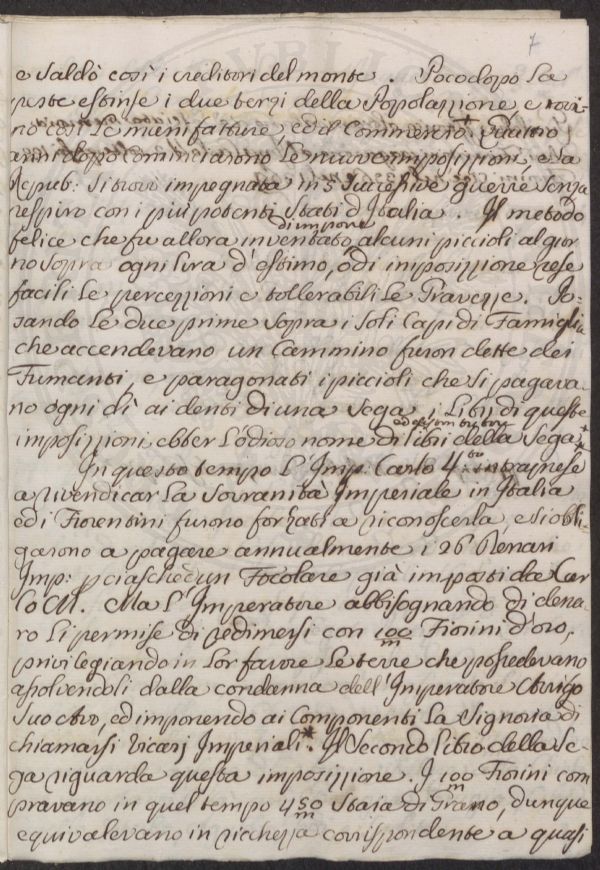 7
e saldò così i creditori del monte . Poco dopo la
peste estinse i due terzi della Popolazzione e rovi
nò così le manifatture, ed il Commercio + Quattro
anni dopo cominciarono le nuove imposizzioni, e la
Repub: si trovò impegnata in 5 successive guerre senza
respiro con i più potenti Stati d'Italia . Il metodo
di imporre
felice che fu allora inventato, alcuni piccioli al gior
no sopra ogni lira d'estimo, ò di imposizzione rese
facili le percezzioni e tollerabili le Gravezze. Po:
sando le due prime sopra i soli Capi di Famiglia
che accendevano un Cammino furon dette dei
Fumanti, e paragonati i piccioli che si pagava
no ogni dì ai denti di una Sega, i Libri di queste
imposizzioni ebber l'odioso nome di libri della Sega *
In questo tempo l'Imp: Carlo 4.to intraprese
a rivendicar la Sovranità Imperiale in Italia
ed i Fiorentini furono forzati a riconoscerla, e si obli
garono a pagare annualmente i 26 Denari
Imp: p ciaschedun Focolare già imposti da Car
lo M. Ma l'Imperatore abbisognando di dena
ro li permise di redimersi con 100/m Fiorini d'oro,
privilegiando in lor favore le terre che possedevano
assolvendoli dalla condanna dell'Imperatore Arrigo
suo Avo, ed imponendo ai Componenti la Signoria di
chiamarsi Vicarj Imperiali * . Il Secondo libro della Se
ga riguarda questa imposizzione. I 100/m Fiorini com
pravano in quel tempo 450/m Staia di Grano, dunque
equivalevano in ricchezza corrispondente a quasi